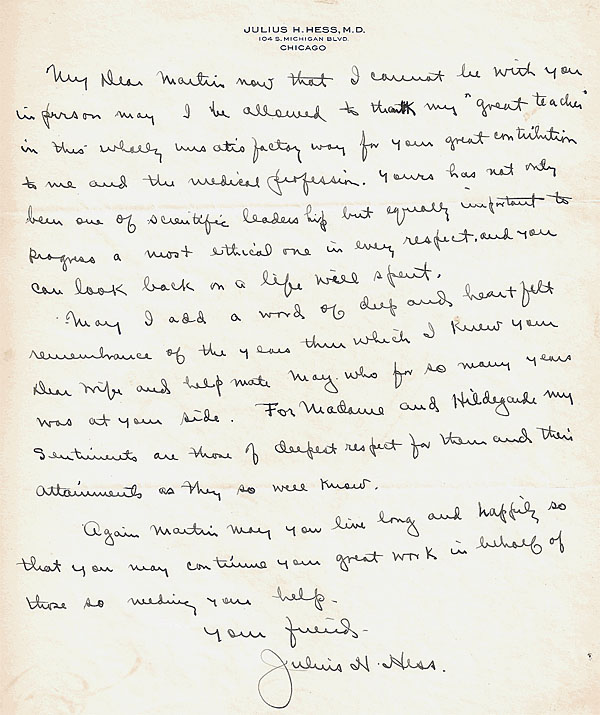 JULIUS H. HESS, M.D.
104 S. MICHIGAN BLVD.
CHICAGO
My Dear Martin now that I cannot be with you
in person may I be allowed to thank my "great teacher"
in this wholly unsatisfactory way for your great contribution
to me and the medical profession. Yours has not only
been one of scientific leadership but equally important to
progress a most ethical one in every respect, and you
can look back on a life well spent.
May I add a word of deep and heartfelt
remembrance of the years thru which I knew your
Dear Wife and help mate May who for so many years
was at your side. For Madame and Hildegarde my
Sentiments are those of deepest respect for them and their
attainments as they so well know.
Again Martin may you live long and happily so
that you may continue your great work in behalf of
those so needing your help-
Your friend-
Julius H. Hess.